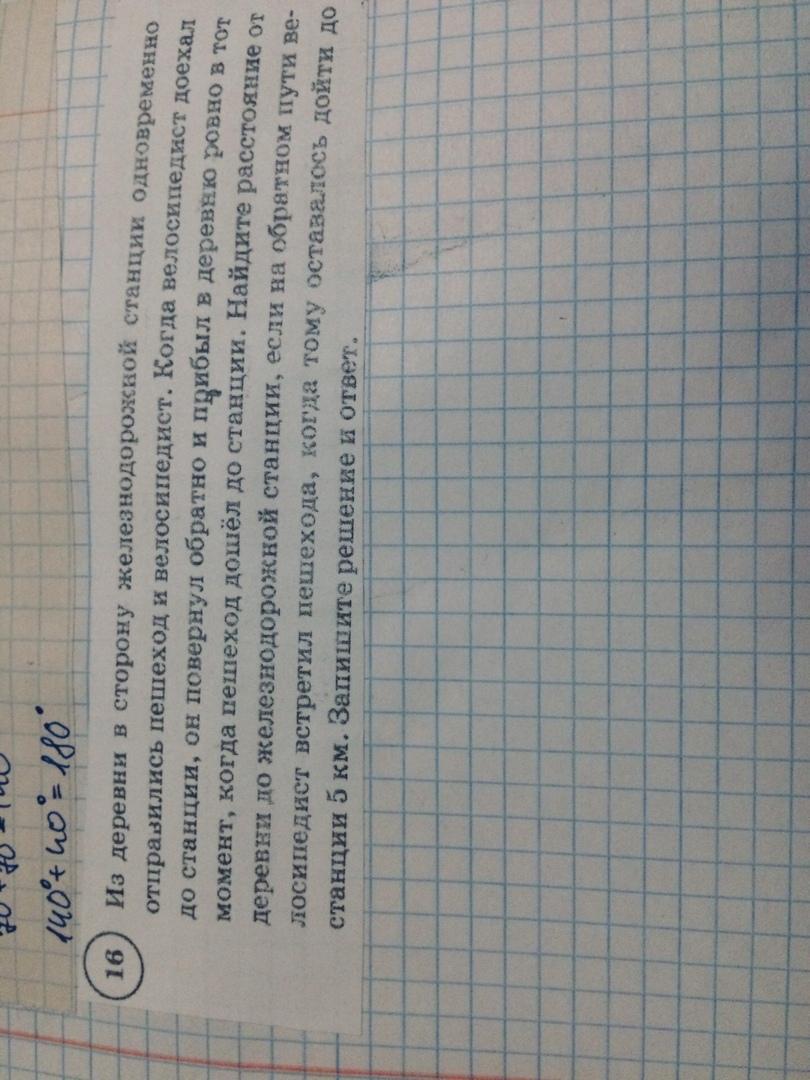 140°+40°=180°
16 Из деревни в сторону железнодорожной станции одновременно
отправились пешеход и велосипедист. Когда велосипедист доехал
до станции, он повернул обратно и прибыл в деревню ровно в тот
момент, когда пешеход дошёл до станции. Найдите расстояние от
деревни до железнодорожной станции, если на обратном пути ве-
лосипедист встретил пешехода, когда тому оставалось дойти до
станции 5 км. Запишите решение и ответ.